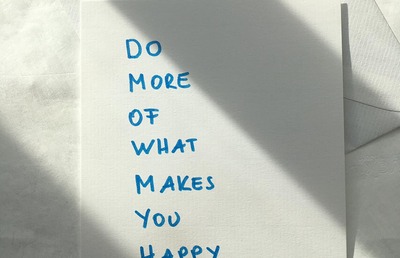 DO
MORE
OF
WHAT
MAKES
YOU
HAPPY